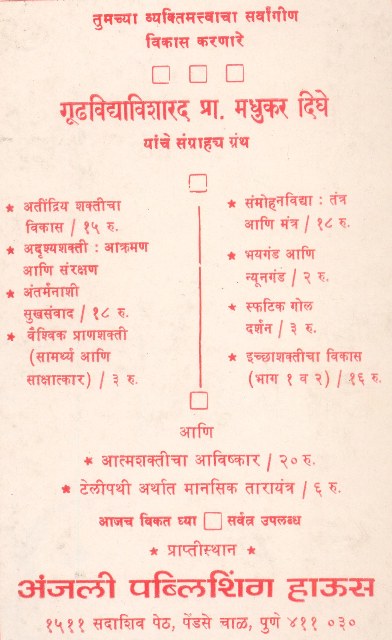 तुमच्या व्यक्तिमत्त्वाचा सर्वांगीण
विकास करणारे
गूढविद्याविशारद प्रा. मधुकर दिघे
यांचे संग्राह्य ग्रंथ
* अतींद्रिय शक्तीचा
विकास / १५ रु.
* अदृश्यशक्ती : आक्रमण
आणि संरक्षण
* अंतर्मनाशी
सुखसंवाद / १८ रु.
* वैश्विक प्राणशक्ती
(सामर्थ्य आणि
साक्षात्कार) / ३ रु.
* संमोहनविद्या : तंत्र
आणि मंत्र / १८ रु.
* भयगंड आणि
न्यूनगंड / २ रु.
* स्फटिक गोल
दर्शन / ३ रु.
* इच्छाशक्तीचा विकास
(भाग १ व २) / १६ रु.
आणि
* आत्मशक्तीचा आविष्कार / २० रु.
* टेलीपथी अर्थात मानसिक तारायंत्र / ६ रु.
आजच विकत घ्या सर्वत्र उपलब्ध
* प्राप्तीस्थान *
अंजली पब्लिशिंग हाऊस
१५११ सदाशिव पेठ, पेंडसे चाळ, पुणे ४११ ०३०